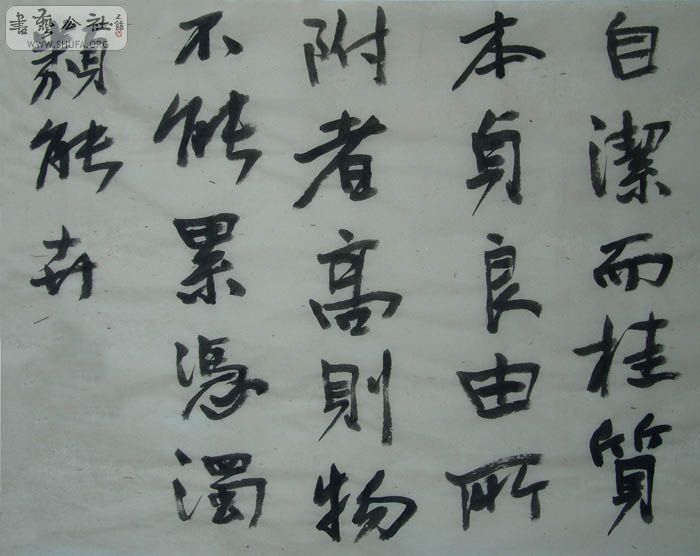 自潔而桂質
本貞良由所
附者高則物
不能累憑濁
類能卉
書藝公社
WWW.SHUFA.ORG